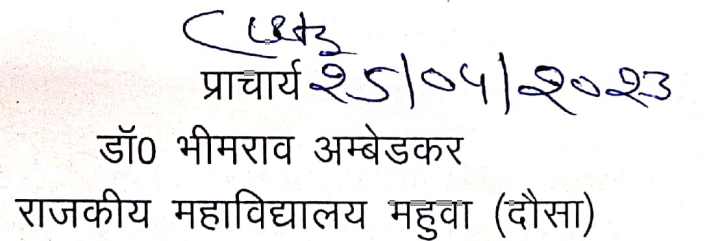 प्राचार्य 25/04/2023
डॉ0 भीमराव अम्बेडकर
राजकीय महाविद्यालय महुवा (दौसा)